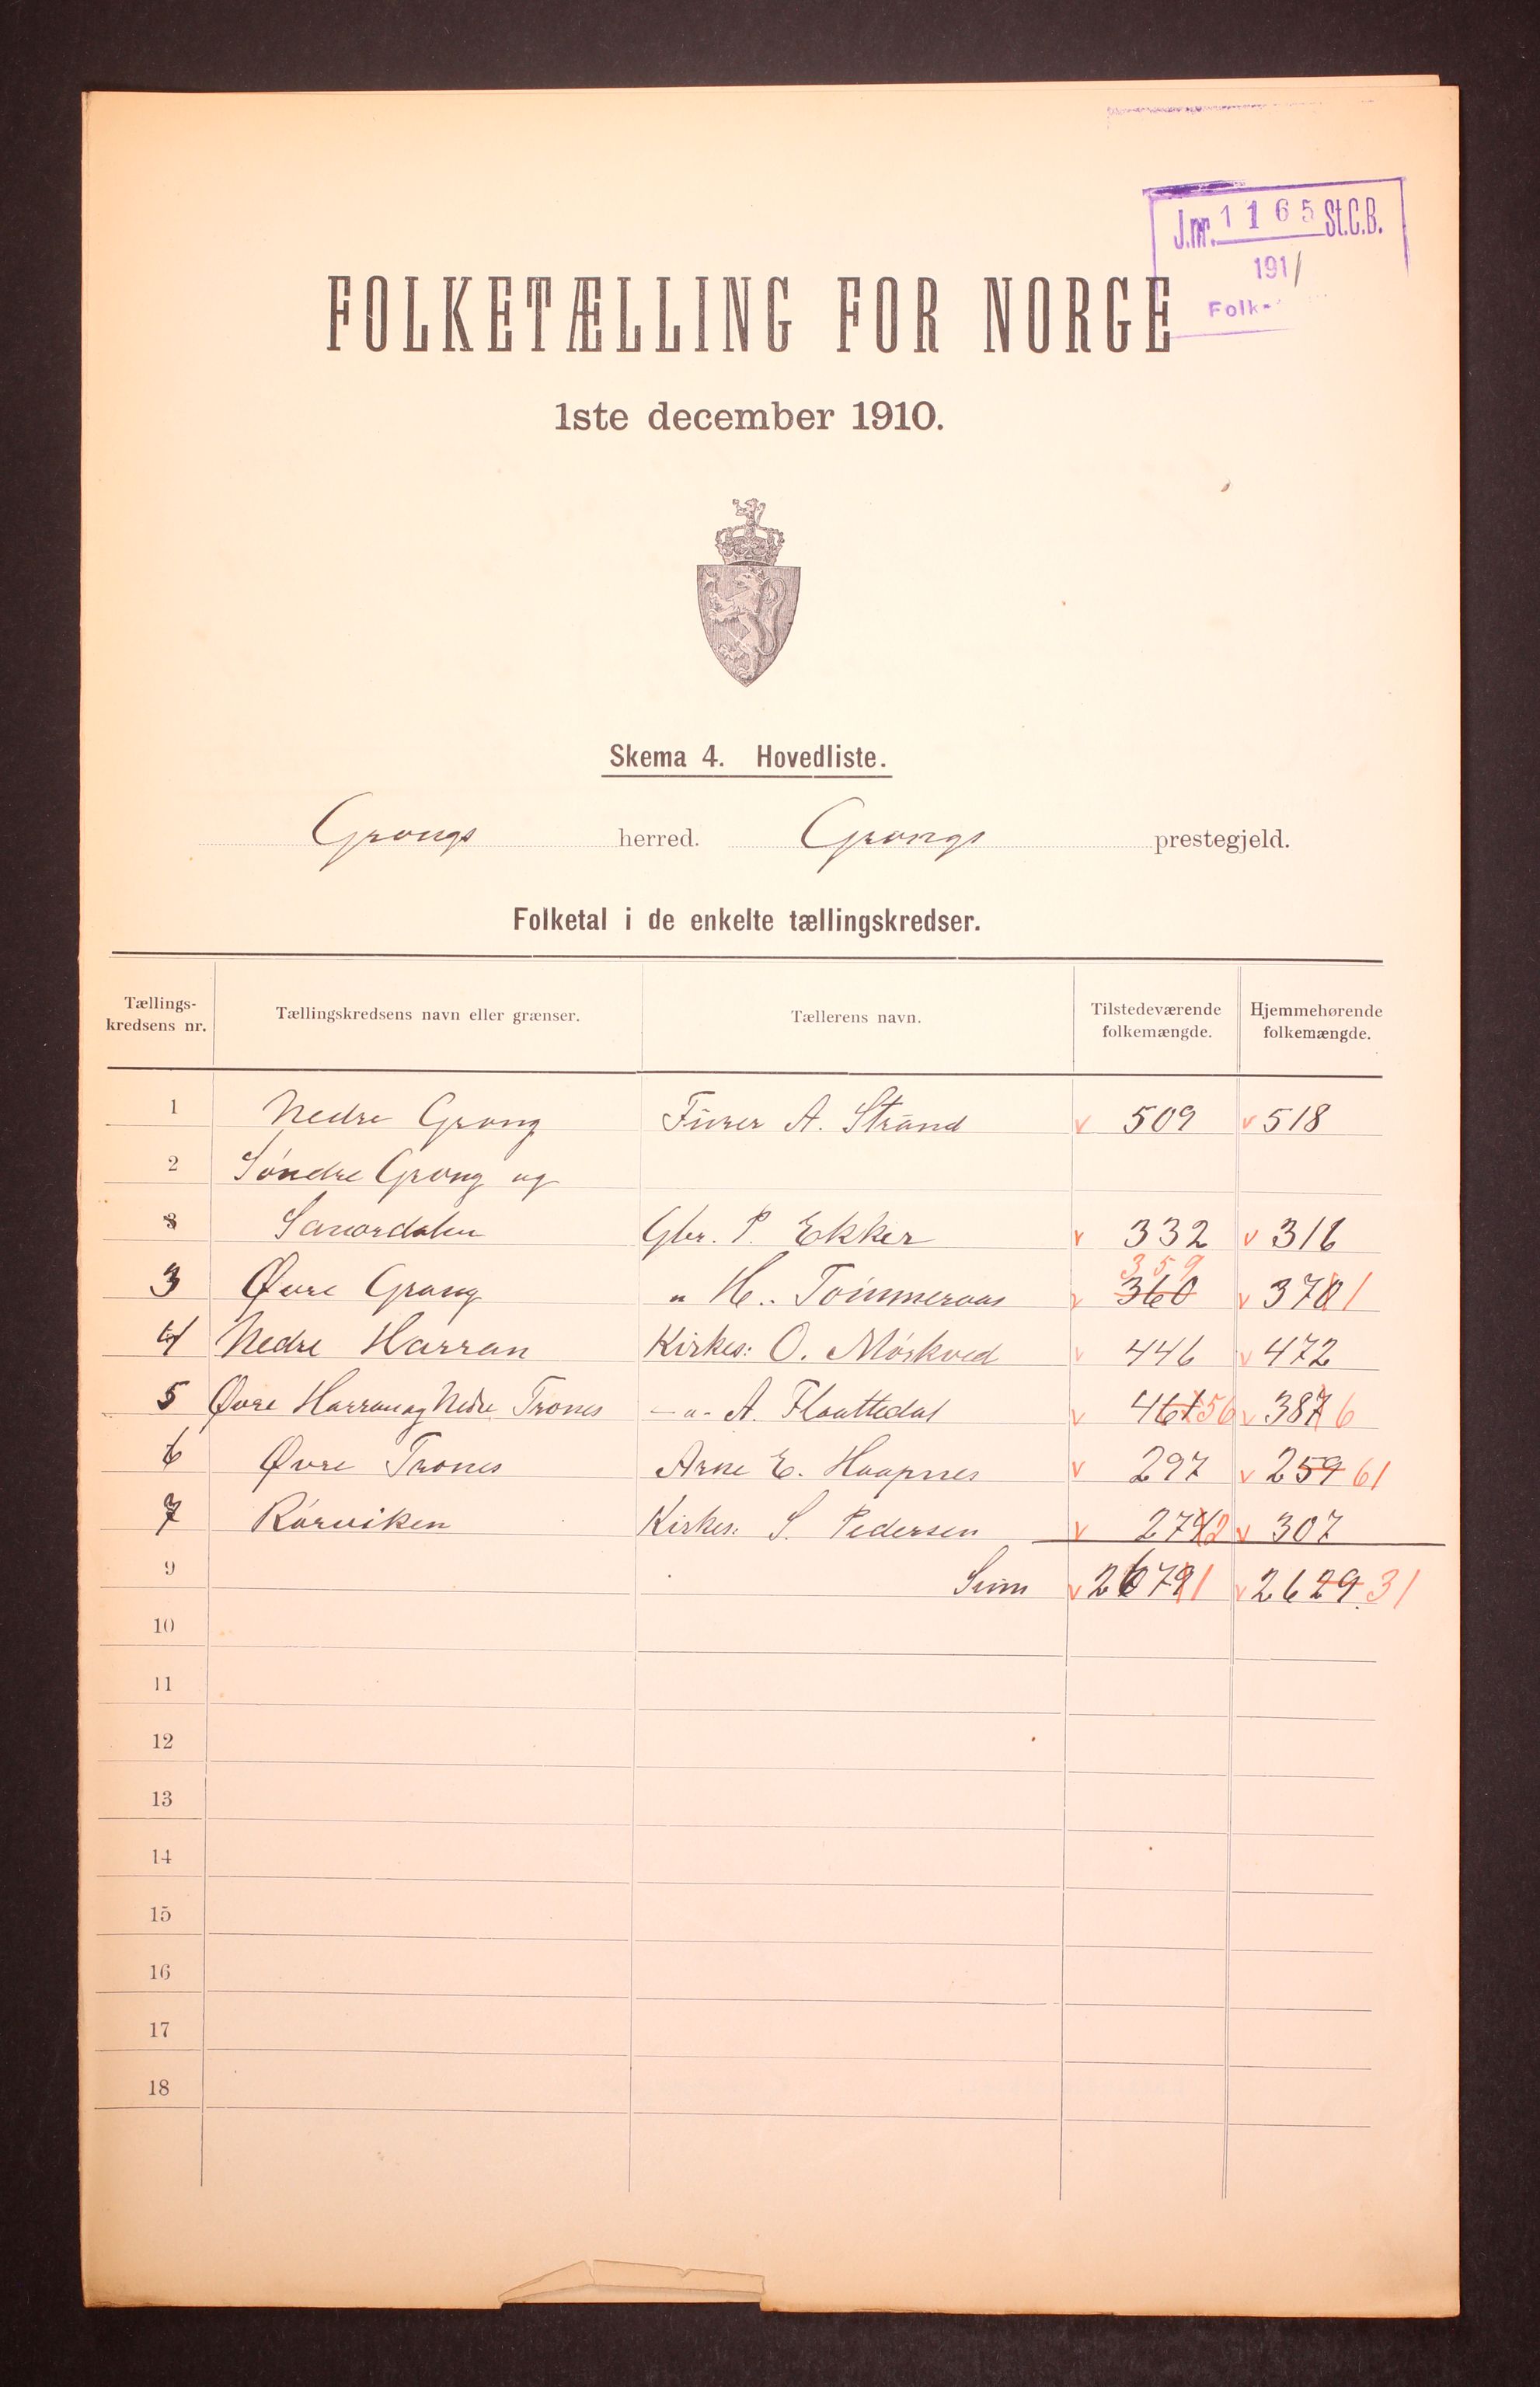 J.nr. 1165 St.C.B.
1911
Folk-
FOLKETÆLLING FOR NORGE
1ste december 1910.
Skema 4. Hovedliste.
Grongs herred. Grongs prestegjeld.
Folketal i de enkelte tællingskredser.
Tællings-kredsens nr. Tællingskredsens navn eller grænser. Tællerens navn. Tilstedeværende folkemængde. Hjemmehørende folkemængde.
1 Nedre Grong Furer A. Strand v 509 v 518
2 Søndre Grong og
3 Sanordalen Gbr. P. Ekker v 332 v 316
359
3 Øvre Grong " H. Tømmeraas v 360 v 370 1
4 Nedre Harran Kirkes: O. Mørkved v 446 v 472
5 Øvre Harran og Nedre Trones -"- A. Flaattedal v 461 56 v 387 6
6 Øvre Trones Arne E. Haapnes v 297 v 259 61
7 Rørviken Kirkes: S. Pedersen v 274 2 v 307
9 Sum v 2679 1 v 2629 31
10
11
12
13
14
15
16
17
18